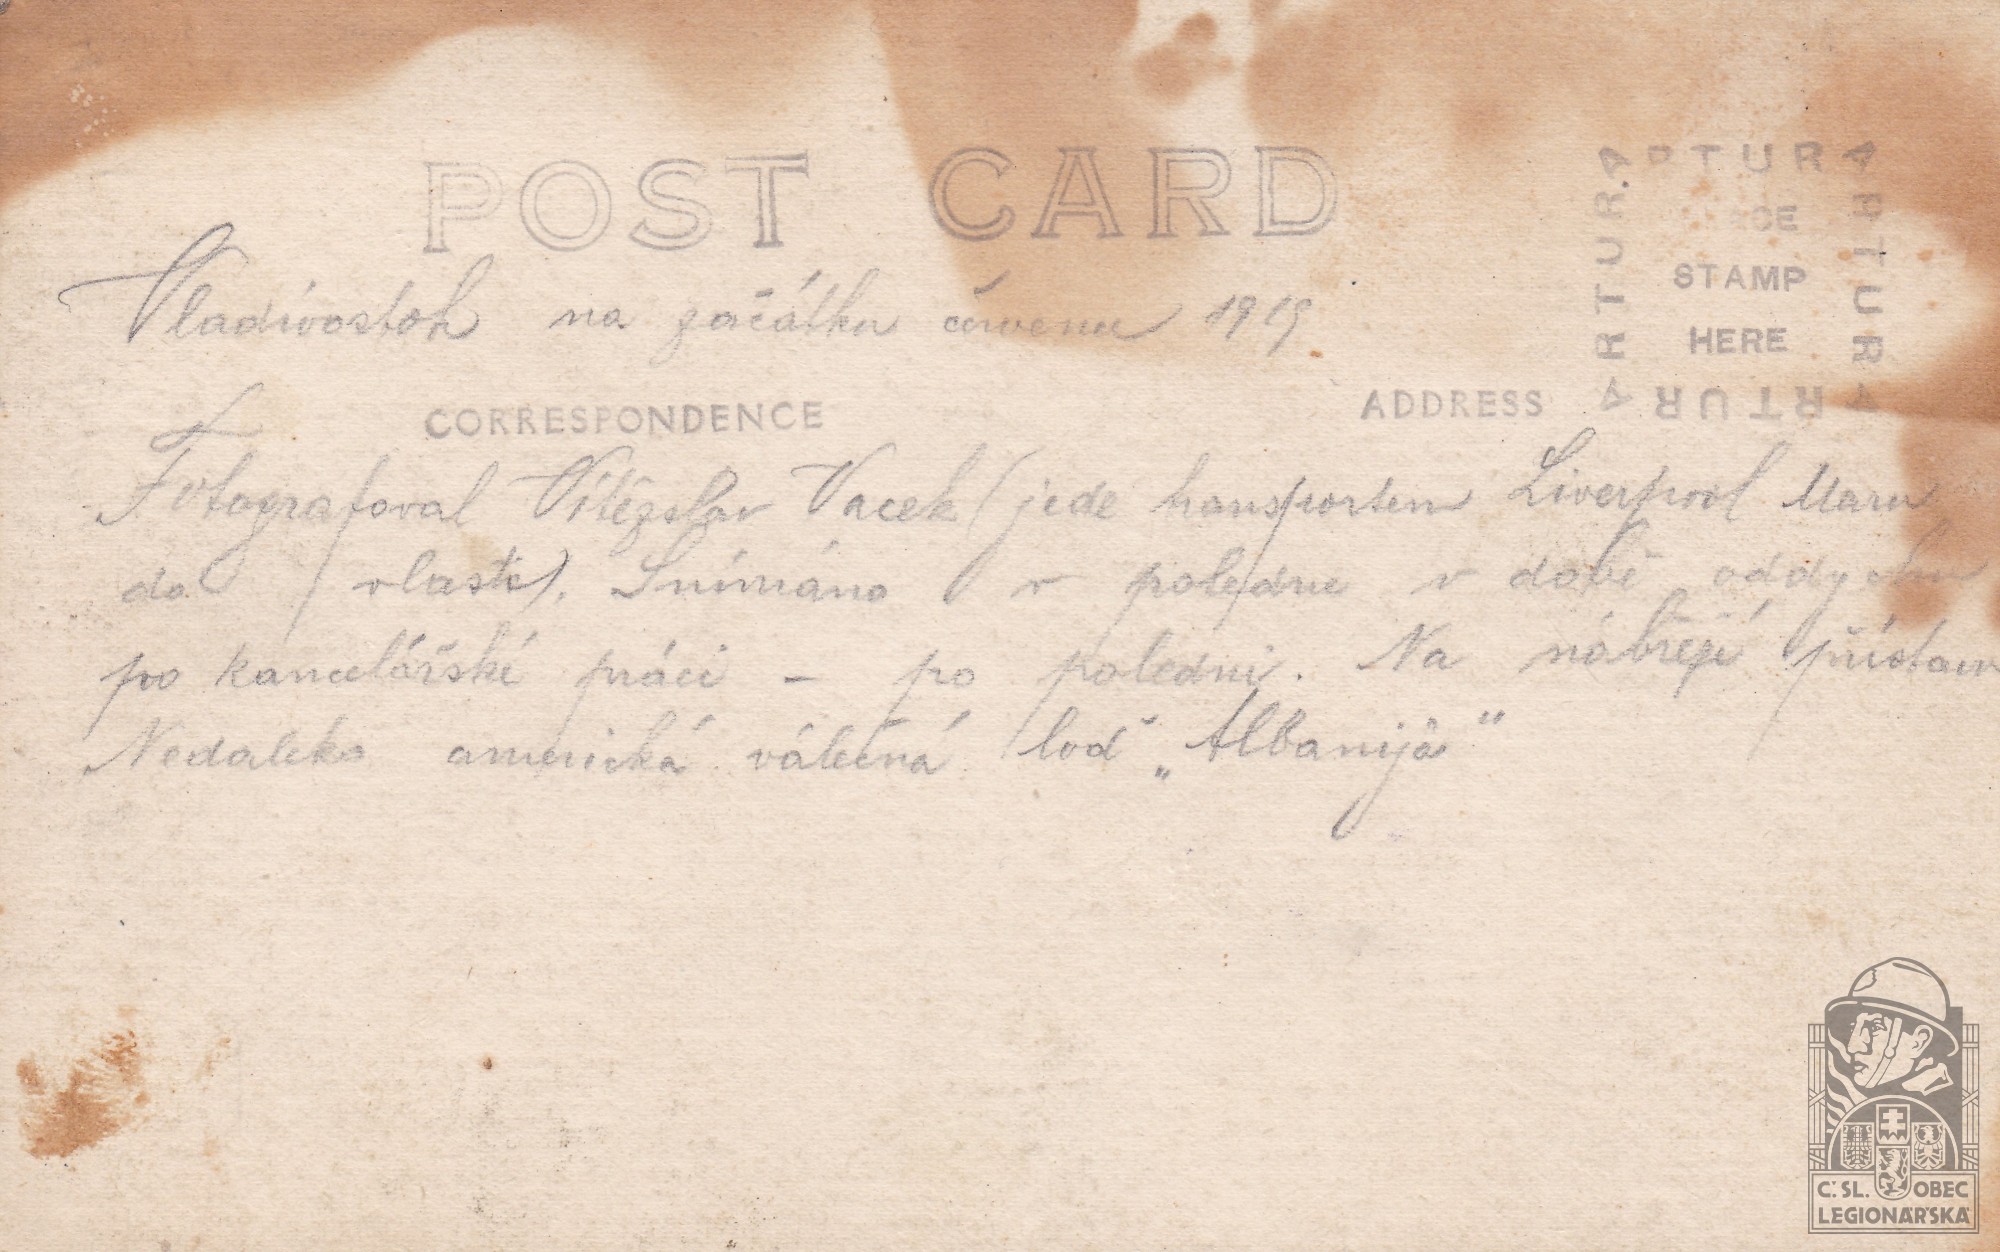 POST CARD
ARTURA
ARTURA
ARTURA
ARTURA
STAMP
HERE
Vladivostok na začátku červenu 1919
CORRESPONDENCE
ADDRESS
Fotografoval Vítězslav Vacek (jede transportem Liverpool Maru
do vlasti). Snímáno v poledne v době oddychu
po kancelářské práci – po poledni. Na nábřeží přístavu
Nedaleko americká válečná loď „Albanija"
Č. SL. OBEC
LEGIONÁŘSKÁ